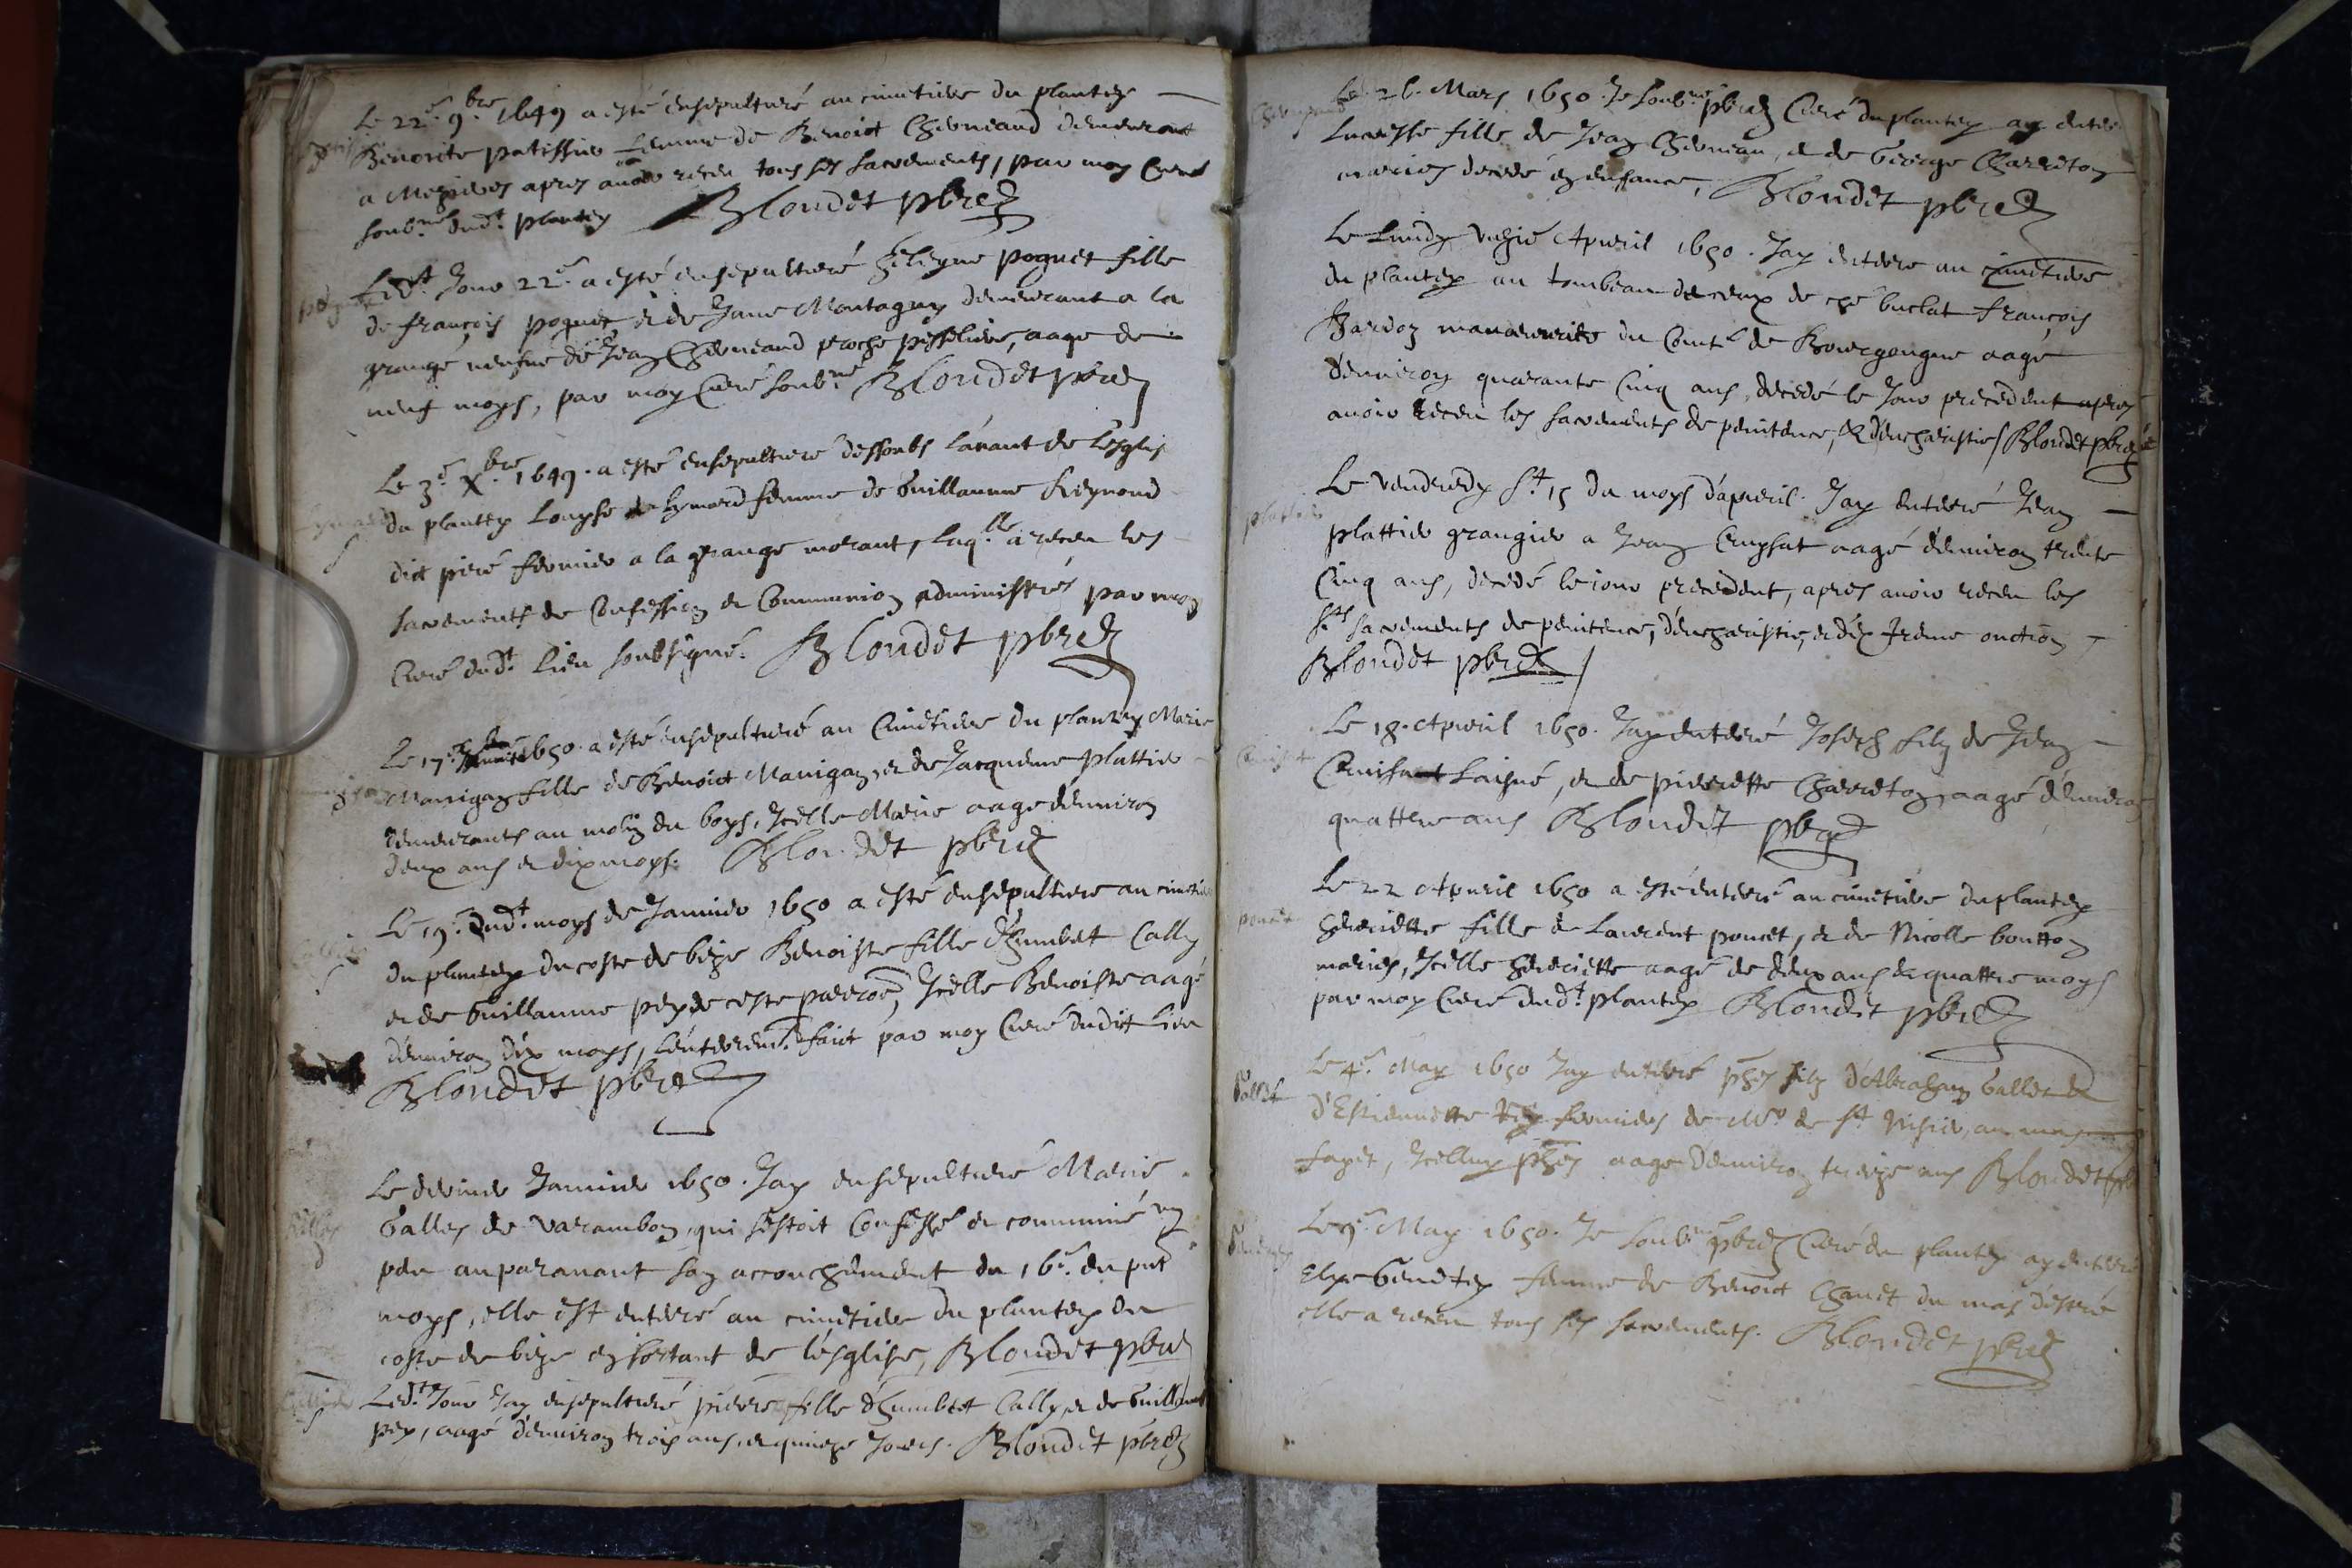 Le 22e 9bre 1649 a esté ensepulturé au cimetiere du plantey
Benoiste patissier femme de Benoict Chevneaud demeurant
a Mezieres apres avoir receu tous ses sacrements, par moy Curé
soubné dudt plantey Blondet pbre
Ledt Jour 22e a esté ensepulturé heleyne poquet fille
de françois poquet et de Jane Montagny demeurant a la
grange neufve de Jean Chevneaud proche pisseliere, aage de
neuf moys, par moy Curé soubné Blondet pbre
Le 3e Xbre 1649 a esté ensepulturé dessoubs lavant de lesglise
du plantey Louyse Eymard femme de Guillaume Reynoud
dict piré fermier a la grange morant, laqlle a receu les
sacrements de Confession et Communion administrés par moy
Curé dudt lieu soubsigné. Blondet pbre
Le 17e 1650 a esté ensepulturé au Cimetiere du plantey Marie
Mauigan fille de Benoict Mauigan, et de Jacqueme plattier
demeurants au molin du boys, Icelle Marie aage denuiron
deux ans et dix moys. Blondet pbre
Le 19e dudt moys de Januier 1650 a esté ensepulturé au cimetiere
du plantey du costé de bize Benoiste fille dhumbet Cally
et de Guillaume pey de ceste parroe, Icelle Benoiste aagé
denuiron dix moys, lenterremt faict par moy Curé dudit Lieu
Blondet pbre
Le dernier Januier 1650. Jay ensepulturé Marie
Galles de Varambon, qui sestoit Confessé et communié un
peu auparauant son accouchement du 16e du pnt
moys, elle est enterré au cimetiere du plantey du
costé de bize en sortant de lésglise, Blondet pbre
Ledt Jour Jay ensepulturé pierre fille dhumbet Cally, et de Guillaume
pey, aagé denuiron trois ans, et quinze Jours. Blondet pbre
Le 26 Mars 1650. Je soubné pbre Curé du plantey ay enterré
Lucresse fille de Jean Chevneau, et de George Charreton
mariés decedé en enfance, Blondet pbre
Le Lundy Apuril 1650. Jay enterre au cimetiere
du plantey au tombeau de ceux de ché buclat françois
Bardoz du Comté de Bourgongne aagé
denuiron quarante Cinq ans, decedé le Jour precedent apres
auoir receu les sacrements de penitence, & deucharistie / Blondet pbre
Le vendredy St 15 du moys dapuril Jay enterré Jean
plattier grangier a Jean Cruysat aagé denuiron trente
Cinq ans, decedé le iour precedent, apres auoir receu les
Sts sacrements de penitence, deucharistie, et dextreme onction
Blondet pbre
Le 18. Apuril 1650. Jay enterré Joseph filz de Jean
Laisné, et de pierrette Charreton, aagé denuiron
quattre ans Blondet pbre
Le 22 Apuril 1650 a esté enterré au cimetiere du plantey
henriette fille de Laurent poncet, et de Nicolle boutton
mariés, Icelle henriette aagé de deux ans et quattre moys
par moy Curé dudt plantey Blondet pbre
Le 4e May 1650 Jay enterré filz d'Abraham Gallet &
d'Estiennette fermiers de Mr de St Nisier, au
fayet, Icelluy aage denuiron treize ans Blondet pbre
Le 9e May 1650. Je soubné pbre Curé du plantey ay enterré
Elye femme de Benoict Chanet du mas
elle a receu tous ses sacrements. Blondet pbre